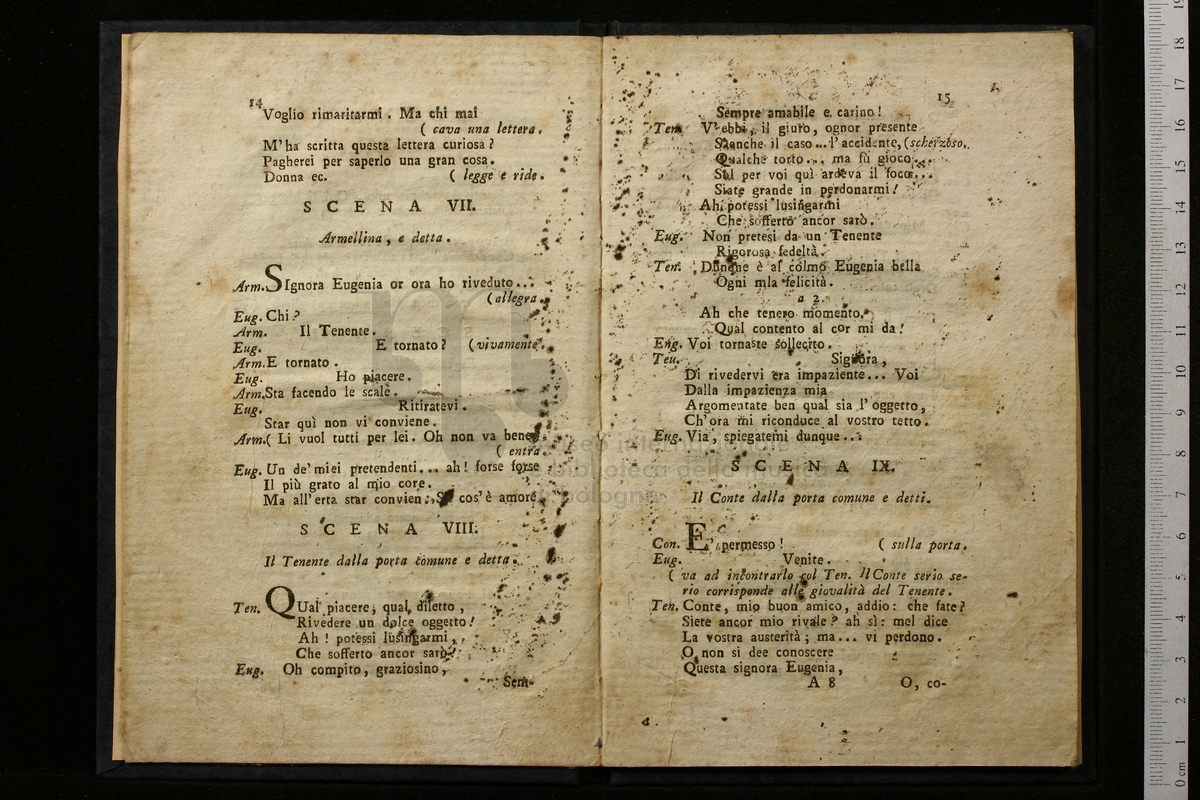 14
Voglio rimaritarmi. Ma chi mai
( cava una lettera.
M'ha scritta questa lettera curiosa?
Pagherei per saperlo una gran cosa.
Donna ec. ( legge e ride.
SCENA VII.
Armellina, e detta.
Arm. SIgnora Eugenia or ora ho riveduto...
(allegra.
Eug. Chi?
Arm. Il Tenente.
Eug. E tornato? (vivamente.
Arm. E tornato.
Eug. Ho piacere.
Arm. Sta facendo le scale.
Eug. Ritiratevi.
Star quì non vi conviene.
Arm. ( Li vuol tutti per lei. Oh non va bene.
( entra.
Eug. Un de' miei pretendenti... ah! forse forse
Il più grato al mio core.
Ma all'erta star convien. Sò cos'è amore.
SCENA VIII.
Il Tenente dalla porta comune e detta.
Ten. QUal piacere, qual diletto,
Rivedere un dolce oggetto!
Ah! potessi lusingarmi,
Che sofferto ancor sarò!
Eug. Oh compito, graziosino,
Sem-
15
Sempre amabile e carino!
Ten. V'ebbi, il giuro, ognor presente
S'anche il caso... l'accidente, (scherzoso.
Qualche torto... ma fù gioco...
Sol per voi quì ardeva il foco...
Siate grande in perdonarmi!
Ah potessi lusingarmi
Che sofferto ancor sarò.
Eug. Non pretesi da un Tenente
Rigorosa fedeltà.
Ten. Dunque è al colmo Eugenia bella
Ogni mia felicità.
a 2.
Ah che tenero momento.
Qual contento al cor mi da!
Eug. Voi tornaste sollecito.
Ten. Signora,
Di rivedervi era impaziente... Voi
Dalla impazienza mia
Argomentate ben qual sia l'oggetto,
Ch'ora mi riconduce al vostro tetto.
Eug. Via, spiegatemi dunque...
SCENA IX.
Il Conte dalla porta comune e detti.
Con. E' permesso! ( sulla porta.
Eug. Venite.
( va ad incontrarlo col Ten. Il Conte serio se-
rio corrisponde alle giovalità del Tenente.
Ten. Conte, mio buon amico, addio: che fate?
Siete ancor mio rivale? ah sì: mel dice
La vostra austerità; ma... vi perdono.
O non si dee conoscere
Questa signora Eugenia,
A 8 O, co-